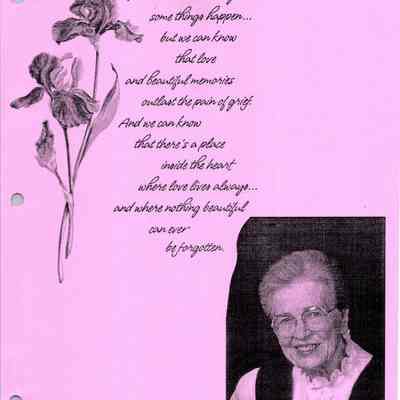 some things happen...
but we can know
that love
and beautiful memories
outlast the pain of grief.
And we can know
that there's a place
inside the heart
where love lives always...
and where nothing beautiful
can ever
be forgotten.